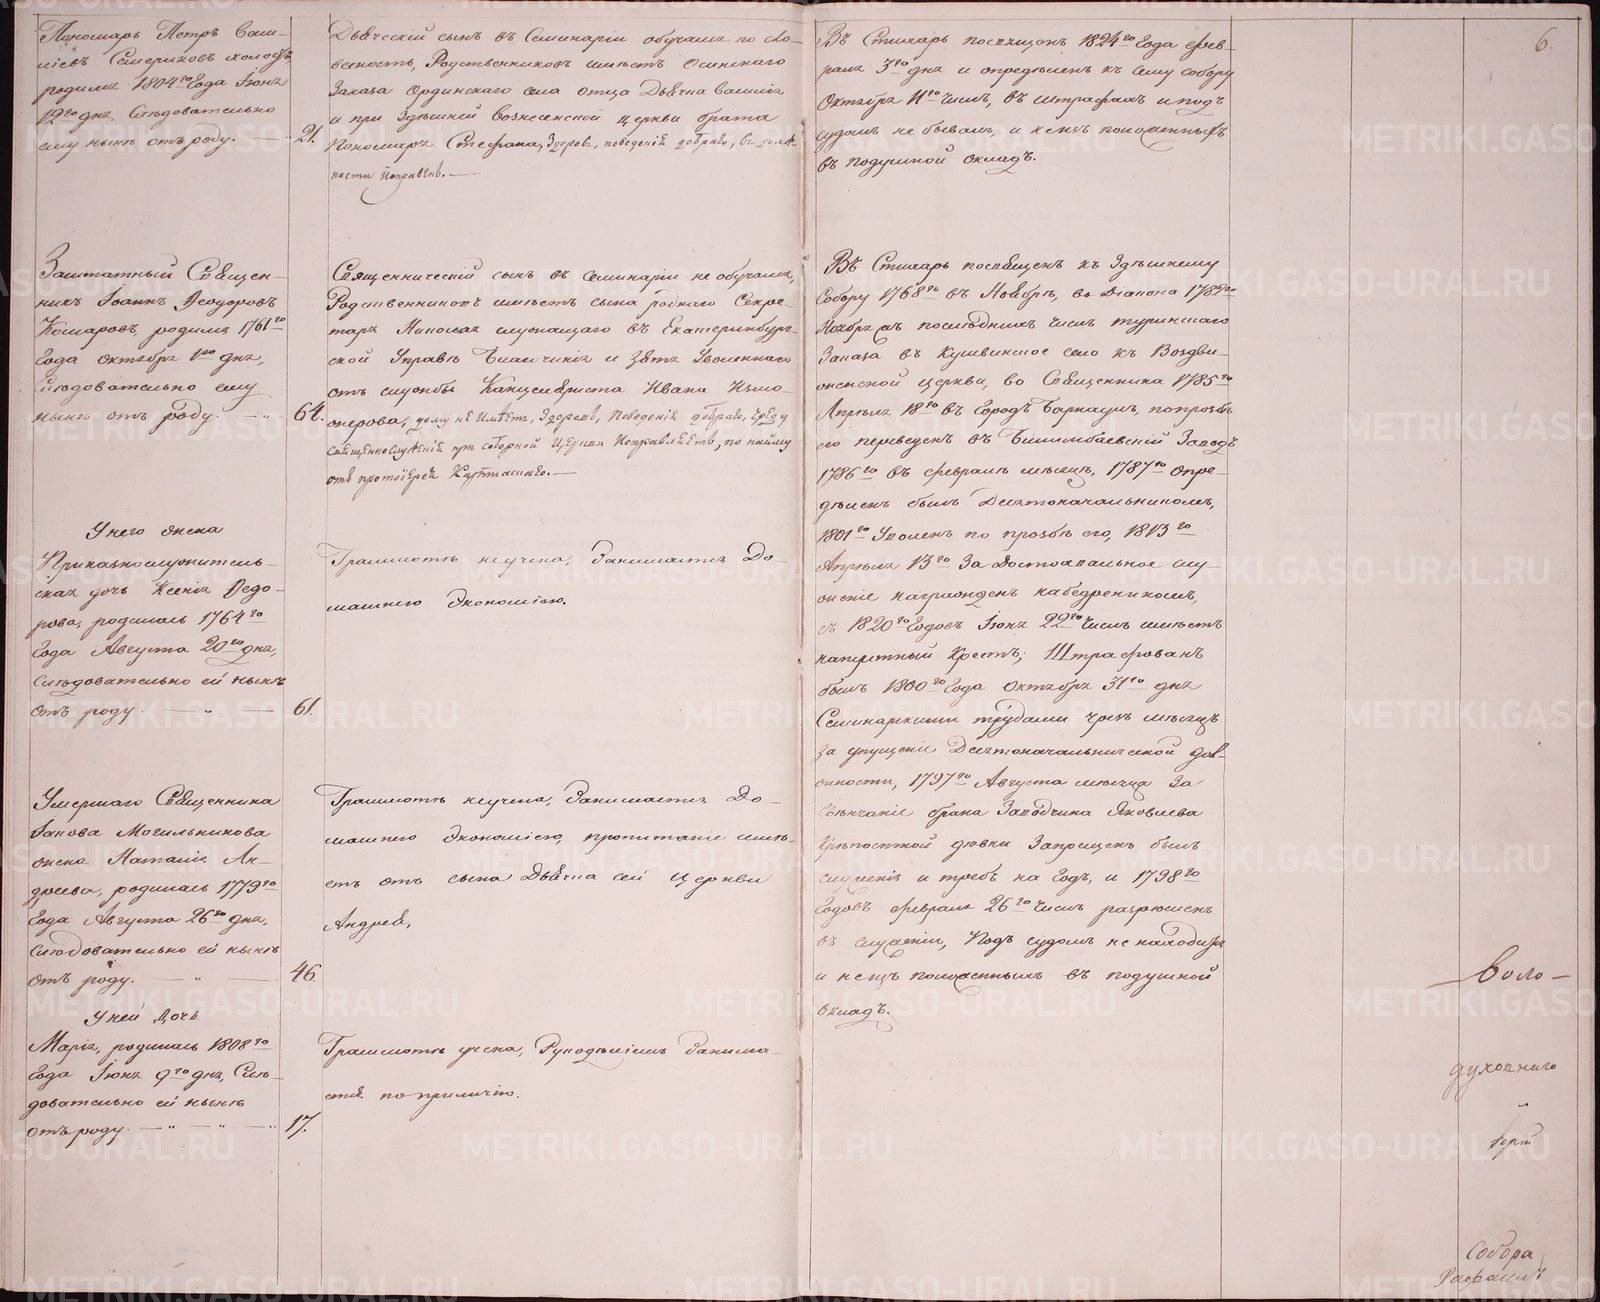 6.
Пономарь Петръ Васи-
ліевъ Семериковъ холостъ,
родился 1804го Года Іюня
12го дня, Слѣдовательно
ему нынѣ отъ роду. 21.
Дьяческій сынъ въ Семинаріи обучался по сло-
весность, Родственниковъ имѣетъ Осинскаго
Заказа Ординскаго села отца Дьячка Василія
и при Здѣшней Вознесенской церкви брата
Пономаря Стефана, Здоровъ, поведенія добраго, въ долж-
ности исправенъ.
Въ Стихарь посвященъ 1824го Года Фев-
раля 3го дня и опредѣленъ къ сему собору
Октября 11го числа, въ штрафахъ и подъ
судомъ не бывалъ, и не изъ положенныхъ
въ подушной окладъ.
Заштатный Священ-
никъ Іоаннъ Ѳеодоровъ
Комаровъ, родился 1761го
Года Октября 1го дня,
Слѣдовательно ему
нынѣ отъ роду. 64.
Священническій сынъ въ семинаріи не обучался,
Родственниковъ имѣетъ сына роднаго Секре-
таря Николая служащаго въ Екатеринбург-
ской Управѣ Благочинія и Зятя Уволеннаго
отъ службы Канцеляриста Ивана Измо-
жерова, дому не имѣетъ, Здоровъ, поведенія добраго, Череду
священнослуженія при соборной Церкви исправляетъ, по найму
отъ протоіерея Карпинскаго.
Въ Стихарь посвященъ къ Здѣшнему
Собору 1768го въ Ноябрѣ, во Діакона 1782го
Ноября въ послѣднихъ числ. туринскаго
Заказа въ Кушвинское село къ Воздви-
женской церкви, во Священника 1785го
Апрѣля 18го въ Городъ Барнаулъ, по прозьбѣ
его переведенъ въ Билимбаевскій Заводъ
1786го въ февралѣ мѣсяцѣ, 1787го опре-
дѣленъ былъ Десятоначальникомъ,
1801го Уволенъ по прозьбѣ его, 1813го
Апрѣля 13го За Достохвальное слу-
женіе награжденъ набедренникомъ,
съ 1820го Годовъ Іюня 22го числа имѣетъ
наперстный Крестъ; Штрафованъ
былъ 1800го Года Октября 31го дня
Семинарскими трудами чрезъ мѣсяцъ
за упущеніе Десятоначальнической дол-
жности, 1797го Августа мѣсяца За
Вѣнчаніе брака Заводчика Яковлева
Крѣпостной дѣвки Запрещенъ былъ
служенія и требъ на Годъ, и 1798го
Годовъ февраля 26го числа разрѣшенъ
въ служеніи, Подъ судомъ не находился
и не изъ положенныхъ въ подушной
окладъ.
У него жена
Приказнослужитель-
ская дочь Ксенія Ѳедо-
рова, родилась 1764го
Года Августа 20го дня,
Слѣдовательно ей нынѣ
отъ роду. 61.
Грамотѣ не учена, Занимается До-
машнею Экономіею.
Умершаго Священника
Іакова Могильникова
жена Наталія Ан-
дреева, родилась 1779го
Года Августа 26го дня,
Слѣдовательно ей нынѣ
отъ роду. 46.
Грамотѣ не учена, Занимается До-
машнею Экономіею, пропитаніе имѣ-
етъ отъ сына Дьячка сей церкви
Андрея,
У ней дочь
Марія, родилась 1808го
Года Іюня 9го дня, Слѣ-
довательно ей нынѣ
отъ роду. 17.
Грамотѣ учена, Рукодѣліемъ Занима-
ется по приличію.
Бого-
духовнаго
Іерей
Собора
Рафаилъ
METRIKI.GASO-URAL.RU